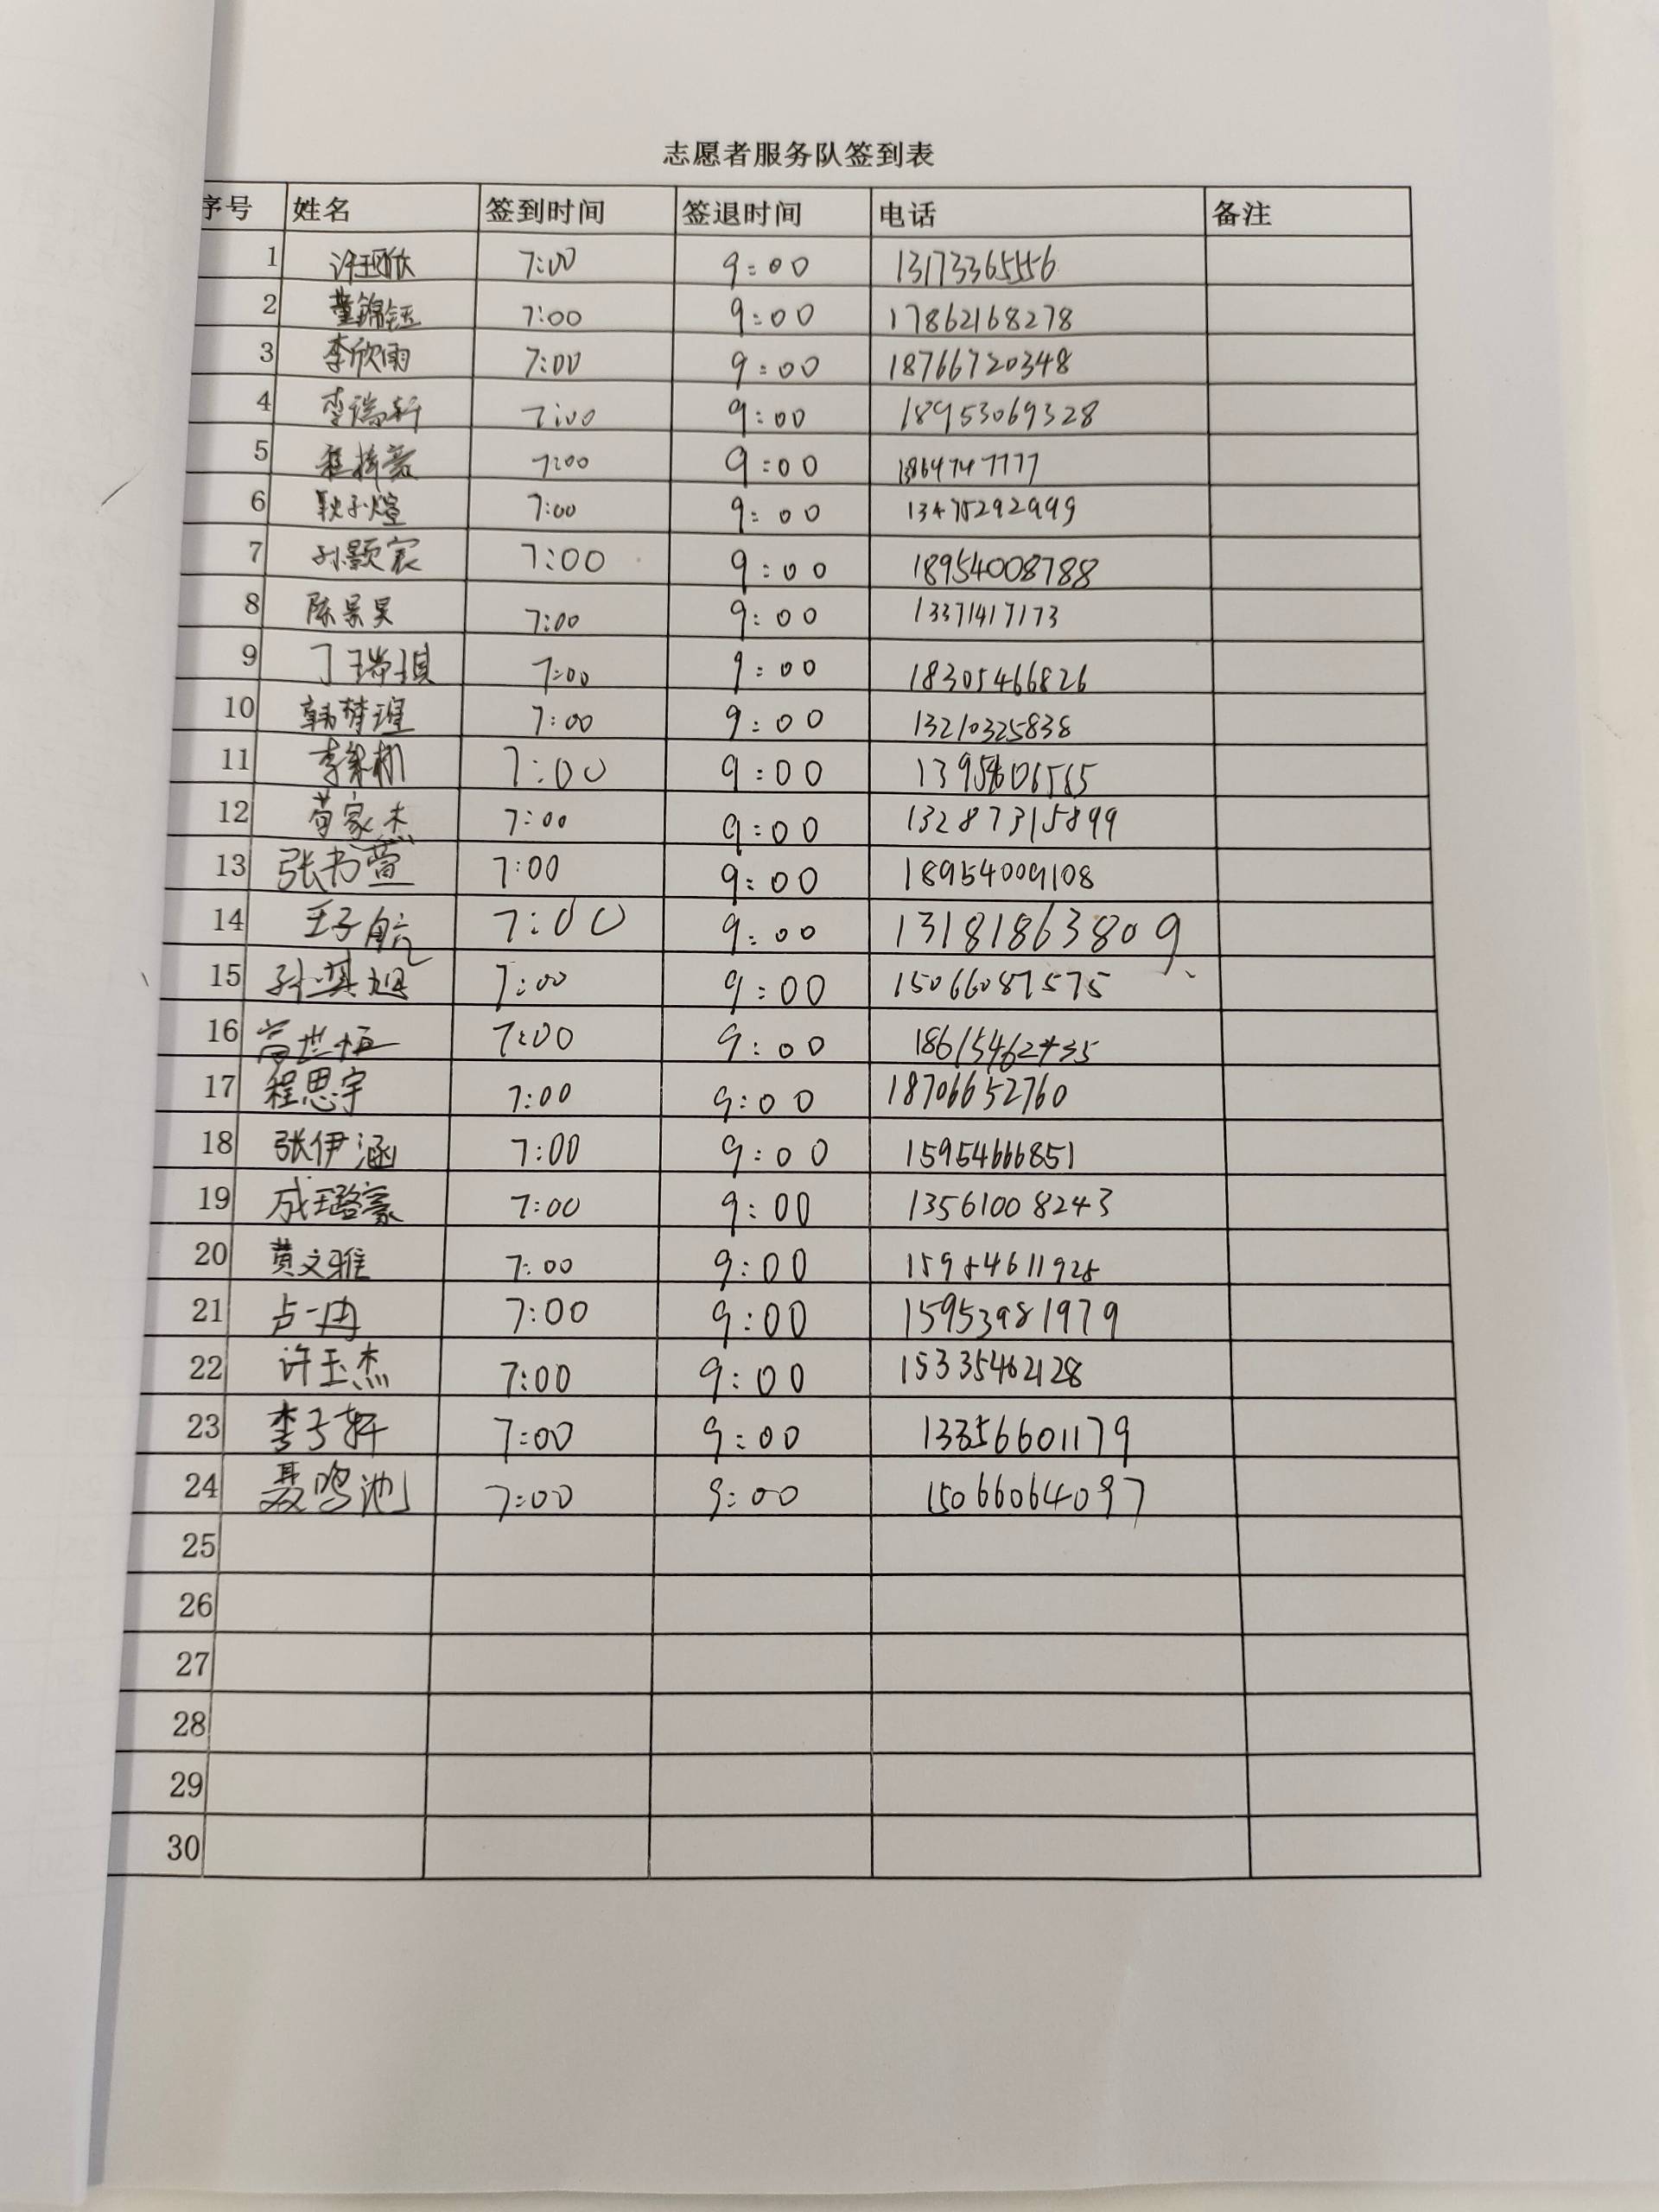 志愿者服务队签到表
序号 姓名 签到时间 签退时间 电话 备注
1 7:00 9:00
2 董锦钰 7:00 9:00 17862168278
3 李欣雨 7:00 9:00 18766720348
4 李瑞新 7:00 9:00 18953069328
5 7:00 9:00
6 耿子煊 7:00 9:00 13475292999
7 孙颢宸 7:00 9:00 18954008788
8 陈景昊 7:00 9:00 13371417173
9 丁瑞琪 7:00 9:00 18305466826
10 韩梦瑄 7:00 9:00 13210325838
11 7:00 9:00
12 苟家杰 7:00 9:00 13287315899
13 张书萱 7:00 9:00 18954009108
14 王子航 7:00 9:00 13181863809
15 孙淇旭 7:00 9:00 15066087575
16 7:00 9:00
17 程思宇 7:00 9:00 18706652760
18 张伊涵 7:00 9:00 15954666851
19 成璐豪 7:00 9:00 13561008243
20 黄文雅 7:00 9:00 15954611925
21 卢一冉 7:00 9:00 15953981979
22 许玉杰 7:00 9:00 15335462128
23 李子轩 7:00 9:00 13356601179
24 聂鸣池 7:00 9:00 15066064097
25
26
27
28
29
30